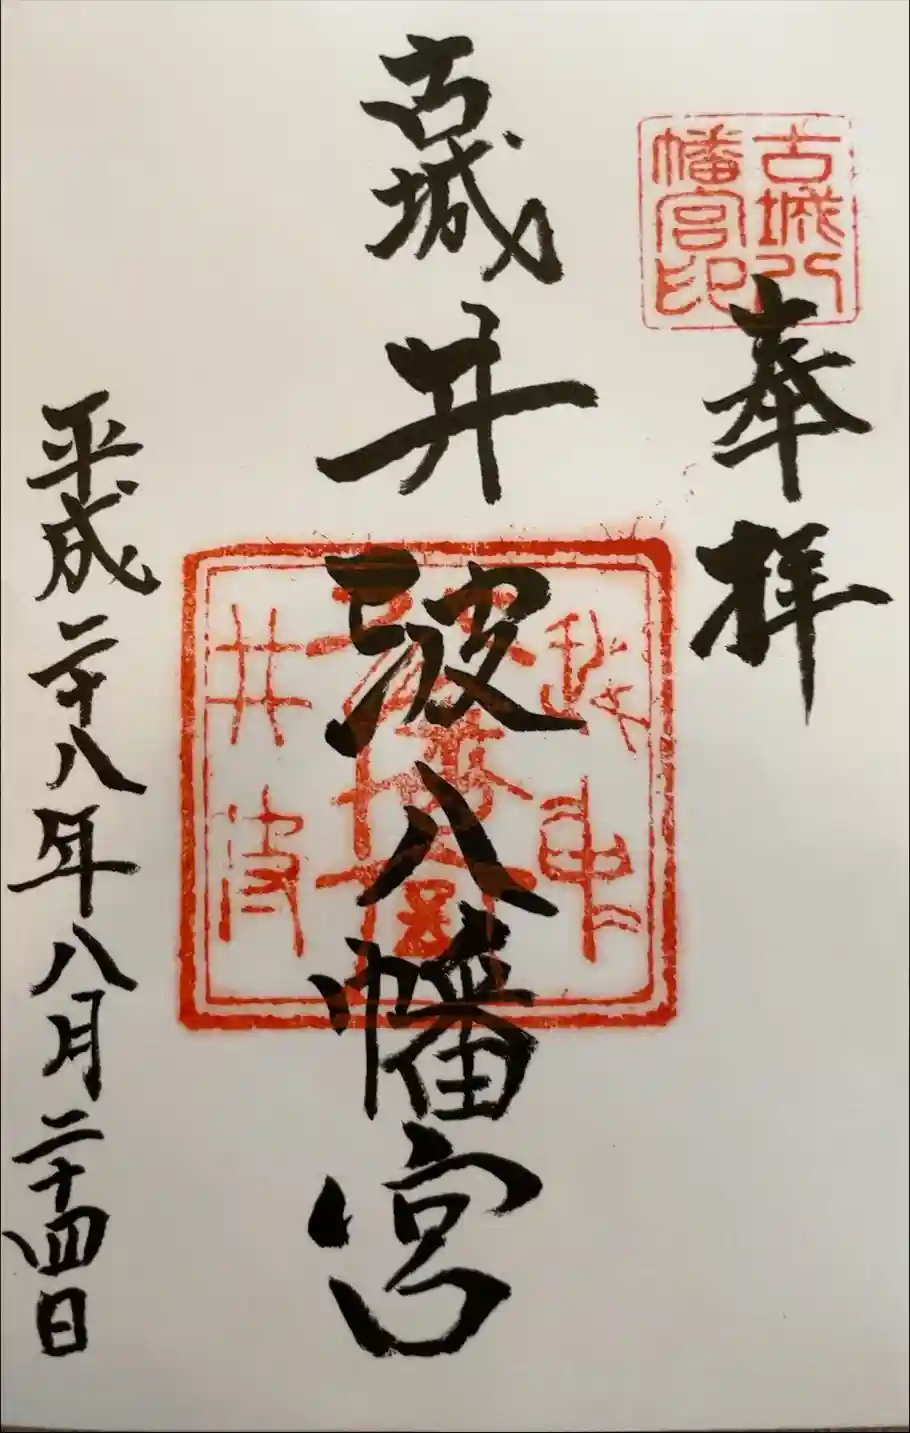 奉拝
古城八
幡宮印
古城井波八幡宮
井波
平成二十八年八月二十四日